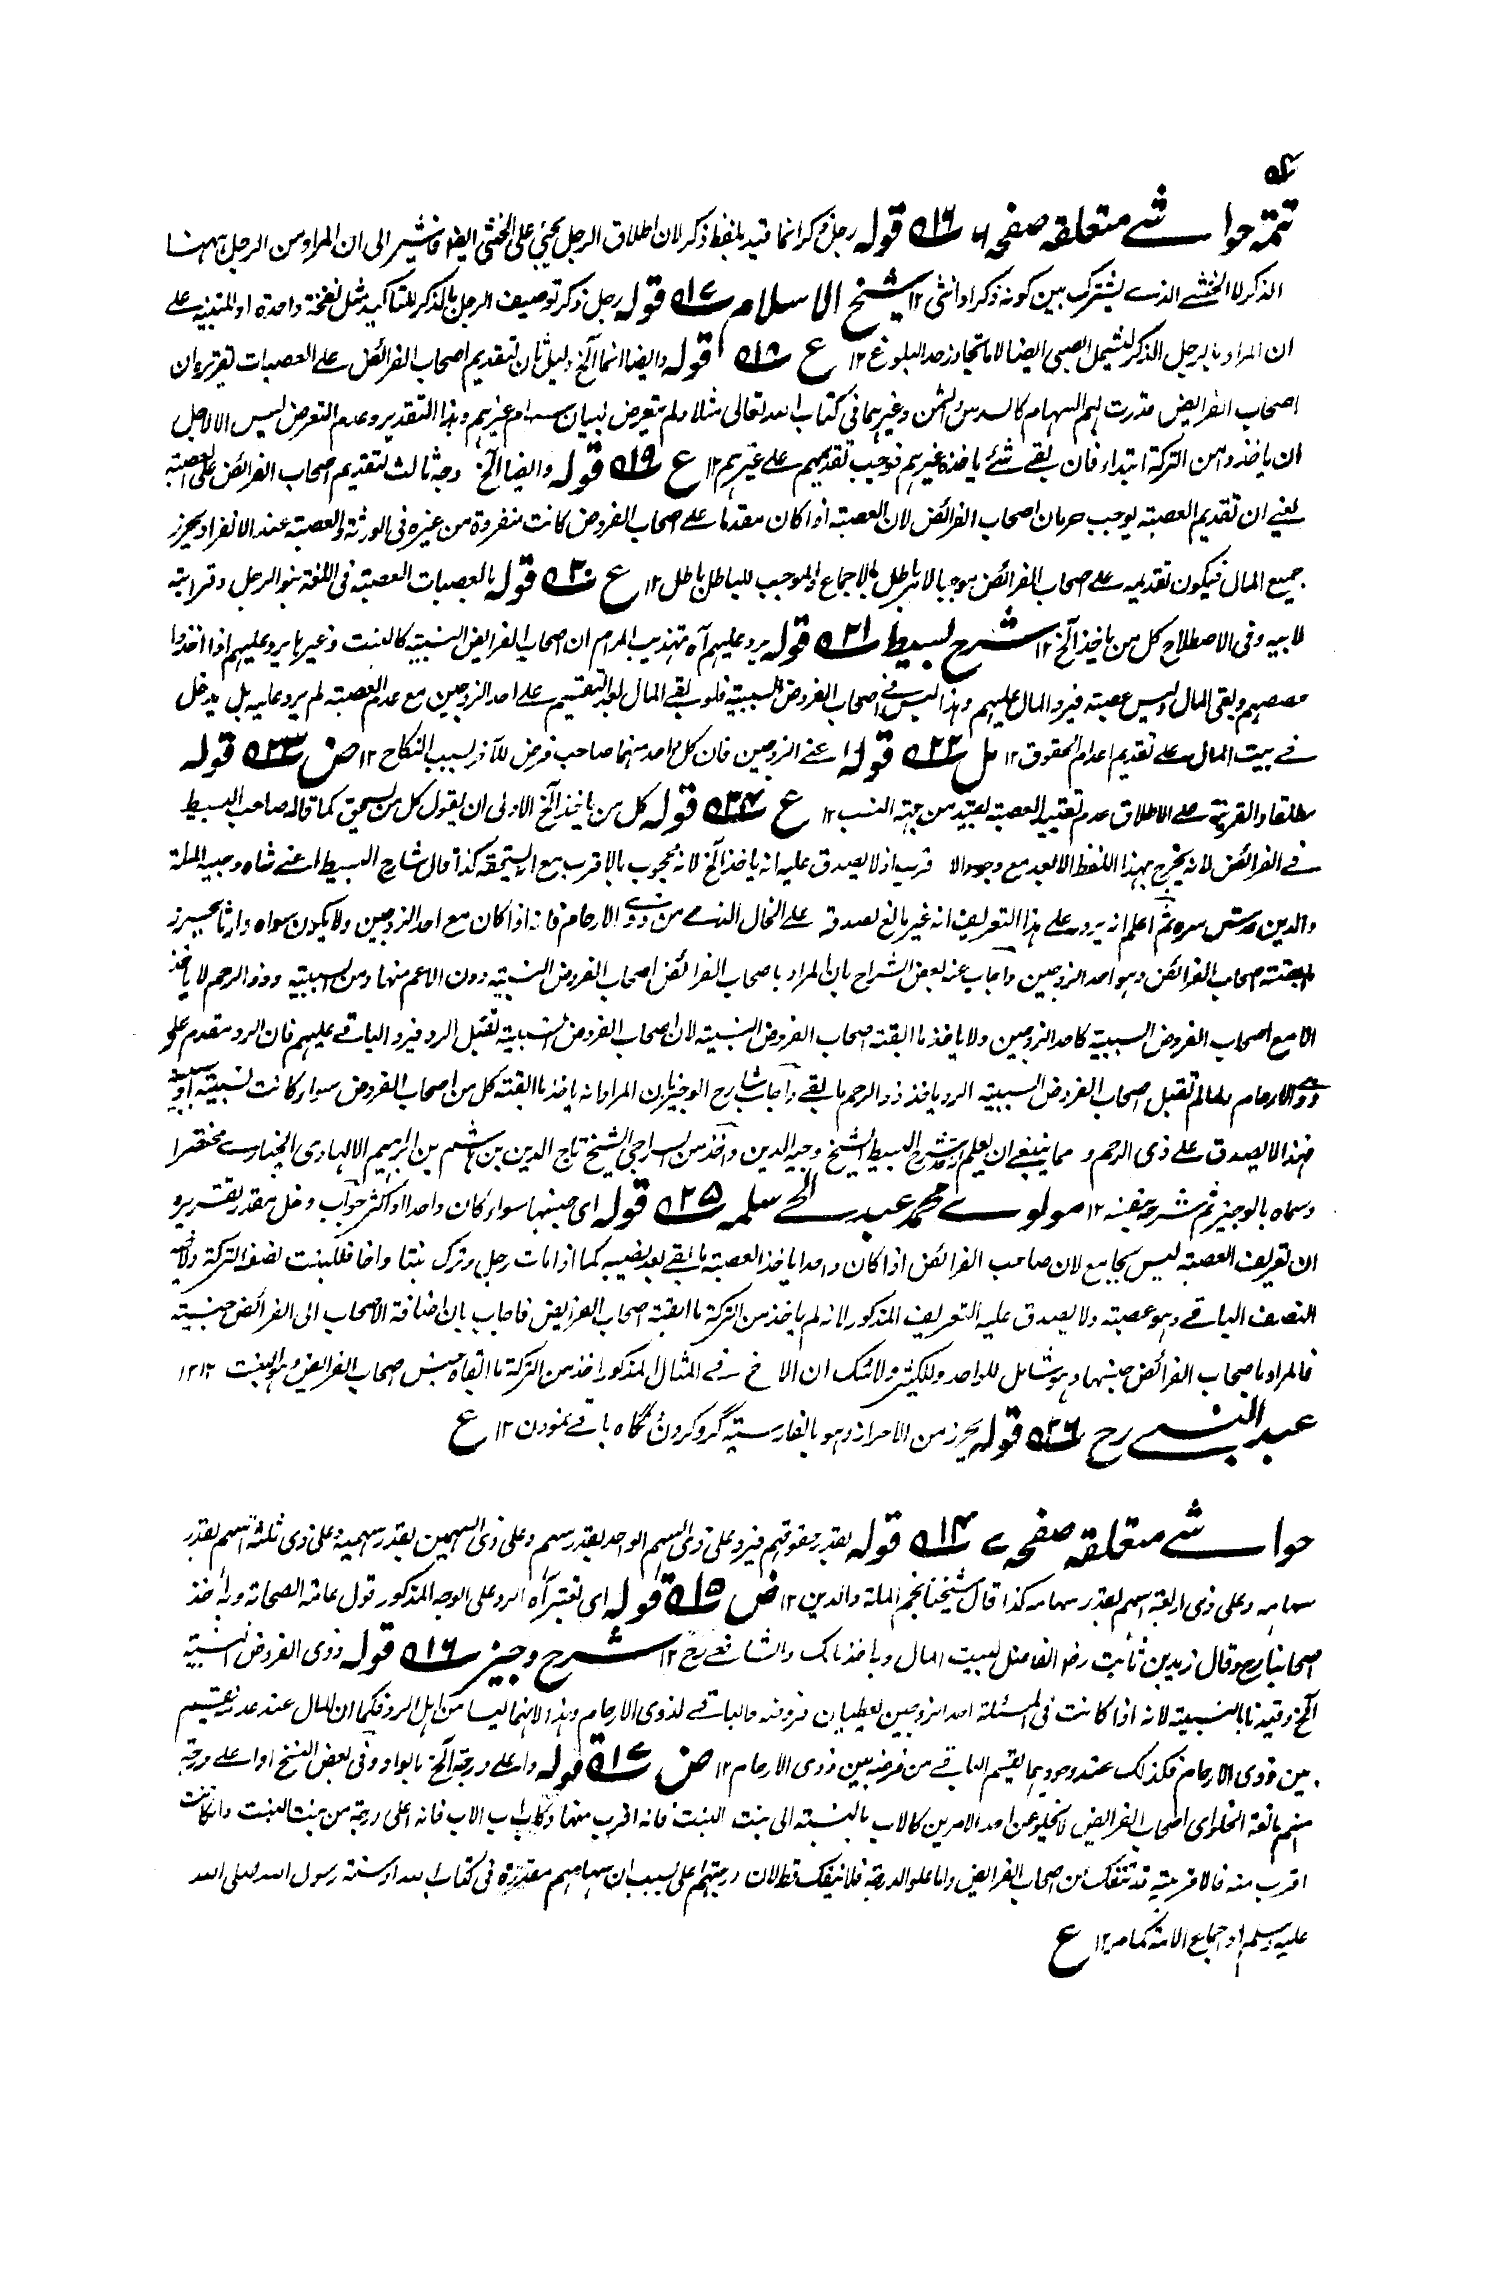 تتمہ حواشے متعلقہ صفحہ ۶ ۱۶ قولہ رجل ذکر انما قید بلفظ ذکر لان اطلاق الرجل یجئ علی الخنثی ایضا فاشیر الی ان المراد من الرجل ہہنا
الذکر لا الخنثے الذے یشترک بین کونہ ذکرا و انثی ۱۲ شیخ الاسلام ۱۷ قولہ رجل ذکر توصیف الرجل بالذکر للتاکید مثل نفخۃ واحدۃ او للتنبیہ علے
ان المراد بالرجل الذکر لیشمل الصبی ایضا لا ما یتجاوز حد البلوغ ۱۲ ع ۱۸ قولہ و ایضا انما آلخ دلیل ثان لتقدیم اصحاب الفرائض علے العصبات تقریرہ ان
اصحاب الفرایض قدرت لہم السہام کالسدس و الثمن و غیرہما فی کتاب اللہ تعالی مثلا و لم یتعرض لبیان سہام غیرہم و ہذا التقدیر و عدم التعرض لیس الا لاجل
ان یاخذوا من الترکۃ ابتداء فان بقے شئے یاخذہ غیرہم فوجب تقدیمہم علے غیرہم ۱۲ ع ۱۹ قولہ و ایضا آلخ وجہ ثالث لتقدیم اصحاب الفرائض علی العصبۃ
یعنے ان تقدیم العصبۃ یوجب حرمان اصحاب الفرائض لان العصبۃ اذا کان مقدما علے اصحاب الفروض کانت منفردۃ من غیرہ فی الورثۃ و العصبۃ عند الانفراد یحرز
جمیع المال فیکون تقدیمہ علے اصحاب الفرائض موجبا لامر باطل بالاجماع و الموجب للباطل باطل ۱۲ ع ۲۰ قولہ بالعصبات العصبۃ فی اللغۃ بنو الرجل و قرابتہ
لابیہ و فی الاصطلاح کل من یاخذ آلخ ۱۲ شرح بسیط ۲۱ قولہ یرد علیہم آہ تہذیب المرام ان اصحاب الفرایض النسبیۃ کالبنت و غیرہا یرد علیہم اذا اخذوا
حصصہم و بقی المال و لیس عصبۃ فیرد المال علیہم و ہذا لیس فے اصحاب الفروض السببیۃ فلو بقے المال بعد التقسیم علے احد الزوجین مع عدم العصبۃ لم یرد علیہ بل یدخل
فے بیت المال علے تقدیم اعدام الحقوق ۱۲ مل ۲۲ قولہ اعنے الزوجین فان کل واحد منہما صاحب فرض للآخر بسبب النکاح ۱۲ ض ۲۳ قولہ
مطلقا و القرینۃ علے الاطلاق عدم تقیید العصبۃ بقید من جہۃ النسب ۱۲ ع ۲۴ قولہ کل من یاخذ آلخ الاولی ان یقول کل من یستحق کما قالہ صاحب البسیط
فے الفرائض لانہ یخرج بہذا اللفظ الابعد مع وجود الاقرب اذ لا یصدق علیہ انہ یاخذ آلخ لانہ محجوب بالاقرب مع انہ یستحقہ کذا قال شارح البسیط اعنے شاہ وجیہ الملۃ
والدین قدس سرہ ثم اعلم انہ یرد علے ہذا التعریف انہ غیر مانع لصدقہ علے الخال الذے من ذوے الارحام فانہ اذا کان مع احد الزوجین و لا یکون سواہ وارثا یحرز
ما ابقتہ اصحاب الفرائض و ہو احد الزوجین و اجاب عنہ بعض الشراح بان المراد باصحاب الفرائض اصحاب الفروض النسبیۃ دون الاعم منہا و من السببیۃ و ذو الرحم لا یاخذ
الا مع اصحاب الفروض السببیۃ کاحد الزوجین و لا یاخذ ما ابقتہ اصحاب الفروض النسبیۃ لان اصحاب الفروض النسبیۃ تقبل الرد فیرد الباقے علیہم فان الرد مقدم علی
ذوے الارحام و لما لم تقبل اصحاب الفروض السببیۃ الرد یاخذ ذو الرحم ما بقے و اجاب شارح الوجیز بان المراد انہ یاخذ ما ابقتہ کل من اصحاب الفروض سواء کانت نسبیۃ او سببیۃ
فہذا لا یصدق علے ذی الرحم و مما ینبغے ان یعلم انہ قد شرح البسیط الشیخ وجیہ الدین و اخذ من السراجی الشیخ تاج الدین بن ہاشم بن ابراہیم الالہادی الخبارے مختصرا
و سماہ بالوجیز ثم شرحہ بنفسہ ۱۲ مولوے محمد عبد الحے سلمہ ۲۵ قولہ ای جنسہا سواء کان واحدا او اکثر جواب دخل مقدر تقریرہ
ان تعریف العصبۃ لیس بجامع لان صاحب الفرائض اذا کان واحدا یاخذ العصبۃ ما بقے بعد نصیبہ کما اذا مات رجل و ترک بنتا و اخا فللبنت نصف الترکۃ و للاخ
النصف الباقے و ہو عصبۃ و لا یصدق علیہ التعریف المذکور لانہ لم یاخذ من الترکۃ ما ابقتہ اصحاب الفرایض فاجاب بان اضافۃ الاصحاب الی الفرائض جنسیۃ
فالمراد باصحاب الفرائض جنسہا و ہو شامل للواحد و للکثیر و لا شک ان الاخ فے المثال المذکور اخذ من الترکۃ ما ابقاہ جنس اصحاب الفرایض و ہو البنت ۱۲ ۱۲
عبد النبے رح ۲۶ قولہ یحرز من الاحراز و ہو بالفارسیۃ گرد کردن و نگاہ باقے نمودن ۱۲ ع
حواشے متعلقہ صفحہ ۷ ۱۴ قولہ بقدر حقوقہم فیرد علی ذی السہم الواحد بقدر سہم و علی ذی السہمین بقدر سہمیہ و علی ذی ثلثۃ اسہم بقدر
سہامہ و علی ذی اربعۃ اسہم بقدر سہامہ کذا قال شیخنا نجم الملۃ والدین ۱۲ ض ۱۵ قولہ ای تعتبر آہ الرد علی الوجہ المذکور قول عامۃ الصحابۃ و بہ اخذ
اصحابنا رح و قال زید بن ثابت رضہ الفاضل لبیت المال و بہ اخذ مالک و الشافعے رح ۱۲ شرح وجیز ۱۶ قولہ ذوی الفروض النسبیۃ
آلخ و قیدنا بالنسبیۃ لانہ اذا کانت فی المسئلۃ احد الزوجین یعطیان فرضہ و الباقے لذوی الارحام و ہذا لانہما لیسا من اہل الرد فکما ان المال عند عدمہما یقسم
بین ذوی الارحام فکذلک عند وجودہما یقسم الباقے من فرضہ بین ذوی الارحام ۱۲ ض ۱۷ قولہ و اعلے درجۃ آلخ بالواو و فی بعض النسخ او اعلے درجۃ
منہم مانعۃ الخلو ای اصحاب الفرایض لا یخلو عن احد الامرین کالاب بالنسبۃ الی بنت البنت فانہ اقرب منہا و کاب اب الاب فانہ اعلی درجۃ من بنت البنت و ان کانت
اقرب منہ فالاقربیۃ قد تنفک من اصحاب الفرایض و اما علو الدرجۃ فلا ینفک قط لان درجتہم اعلی بسبب ان سہامہم مقدرۃ فی کتاب اللہ او سنۃ رسول اللہ صلی اللہ
علیہ و سلم او اجماع الامۃ کما مر ۱۲ ع